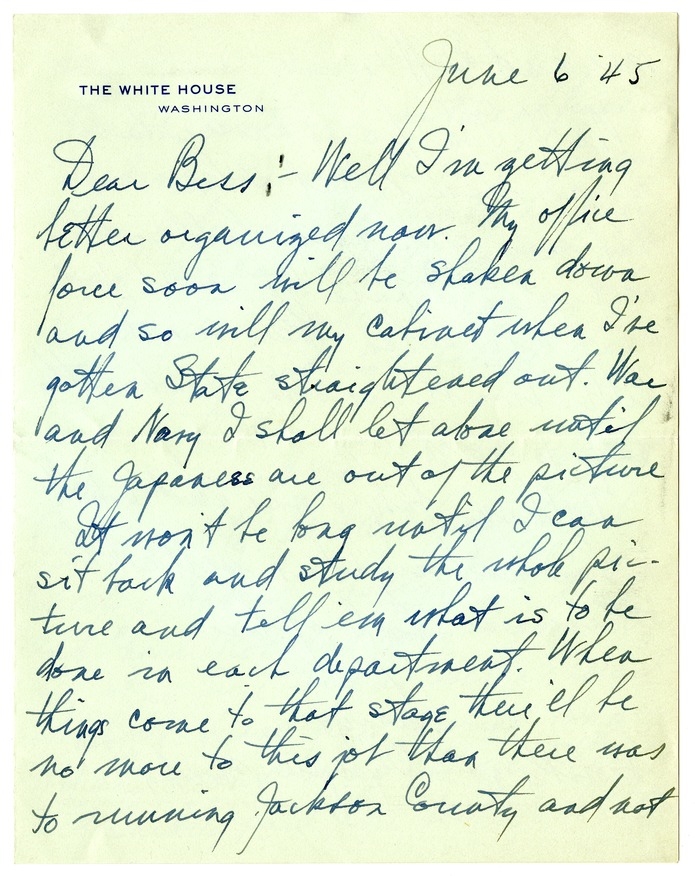 June 6 '45
THE WHITE HOUSE
WASHINGTON
Dear Bess:- Well I'm getting
better organized now. My office
force soon will be shaken down
and so will my cabinet when I've
gotten State straightened out. War
and Navy I shall let alone until
the Japanese are out of the picture
It won't be long until I can
sit back and study the whole pic-
ture and tell em what is to be
done in each department. When
things come to that stage there'll be
no more to this job than there was
to running Jackson County and not